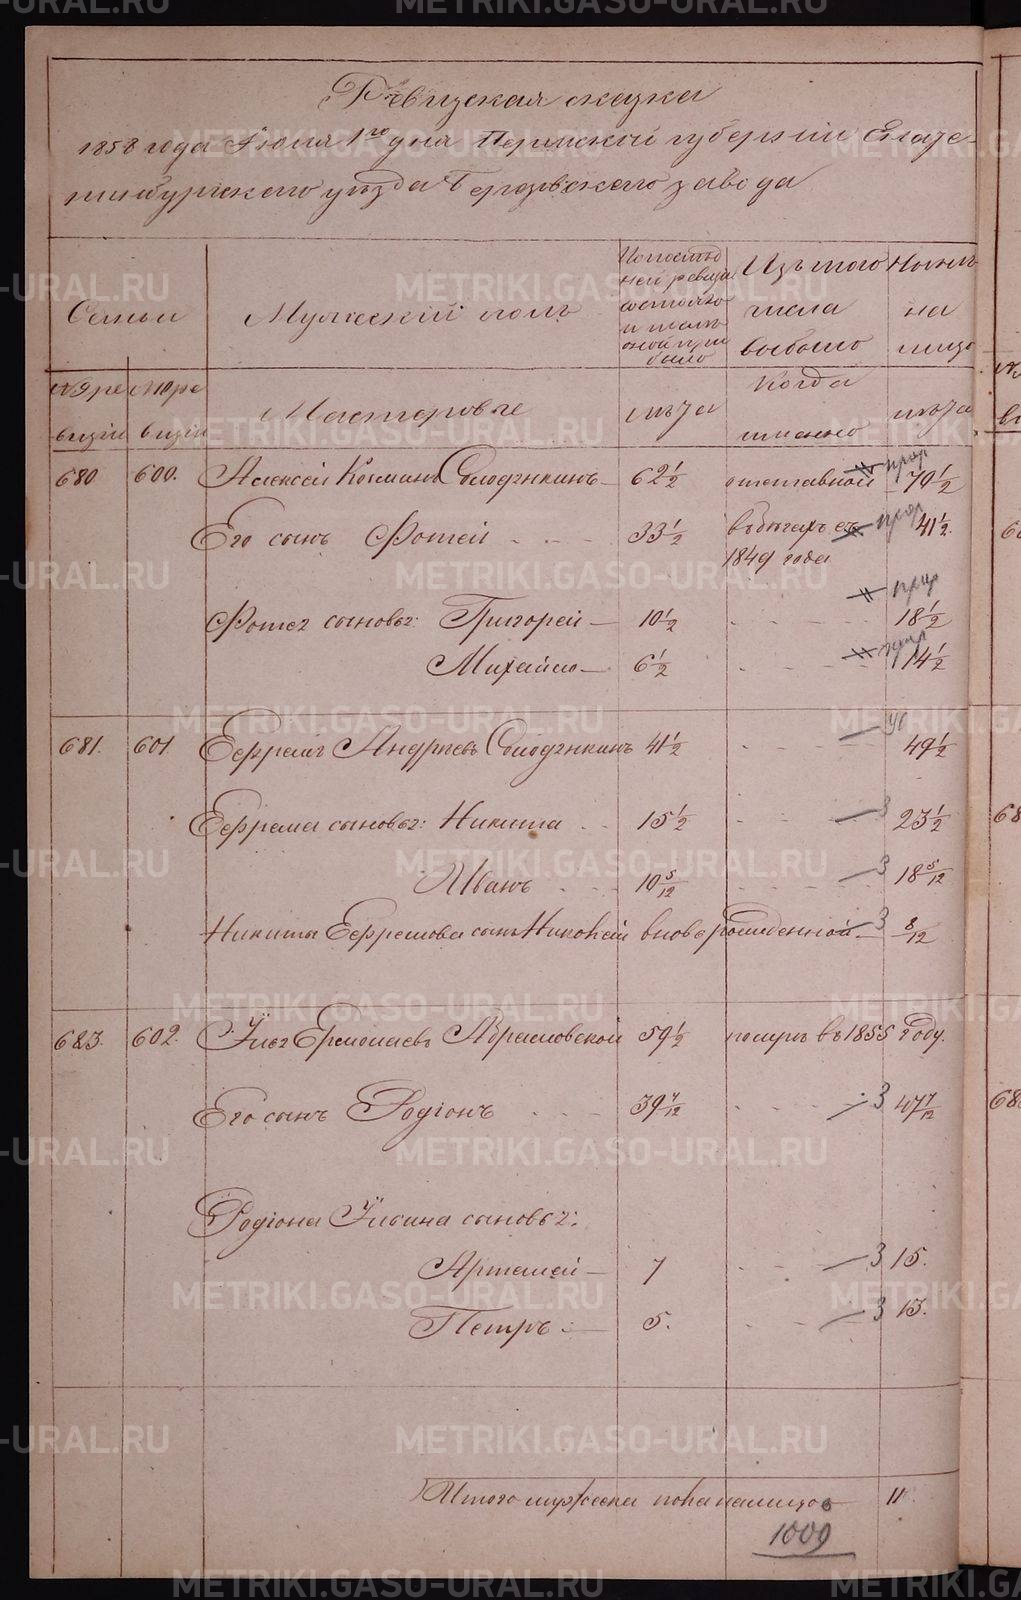 Ревизская сказка
1858 года Июня 1го дня Пермской губернии Екате-
ринбургскаго уѣзда Березовскаго завода
Семьи
Мужеский полъ
По послѣд
ней ревизи
состояло
и
было
Изъ того
числа
выбыло
Нынѣ
на
лицо
ре
визии
ре
визии
Мастеровые
лѣта
Когда
именно
лѣта
680 600. Алексей Козминъ Солодянкинъ 62 1/2 отставной 70 1/2
Его сынъ Фотей 33 1/2 въ бегахъ съ 41 1/2.
1849 года
Фотея сыновья: Григорей 10 1/2 18 1/2
Михайло 6 1/2 14 1/2
681. 601 Ефремъ Андреевъ Солодянкинъ 41 1/2 49 1/2
Ефрема сыновья: Никита 15 1/2 3 23 1/2
Иванъ 10 5/12 3 18 5/12
Никиты Ефремова сынъ вновь рожденной 3 8/12
683. 602. Илья Ермолаевъ Абрамовской 59 1/2 померъ въ 1855 году.
Его сынъ Родіонъ 39 7/12 3 47 7/12
Родіона Ильина сыновья:
Артемей 7 3 15.
Петръ 5. 3 13.
Итого мужеска пола налицо 11
1009
METRIKI.GASO-URAL.RU